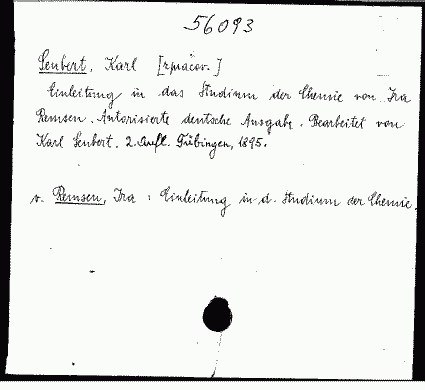 56093
Seubert, Karl [zpracov.]
Einleitung in das Studium der Chemie von Ira
Remsen. Autorisierte deutsche Ausgabe. Bearbeitet von
Karl Seubert. 2. Aufl. Tübingen, 1895.
v. Remsen, Ira : Einleitung in d. Studium der Chemie.